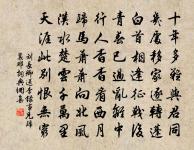 十年多難與君同
幾處移家逐轉蓬
白首相逢征戰後
青春已過亂離中
行人杳杳看西月
歸馬蕭蕭向北風
漢水楚雲千萬里
天涯此別恨無窮
劉長卿送李錄事兄歸
襄鄧詞典網集